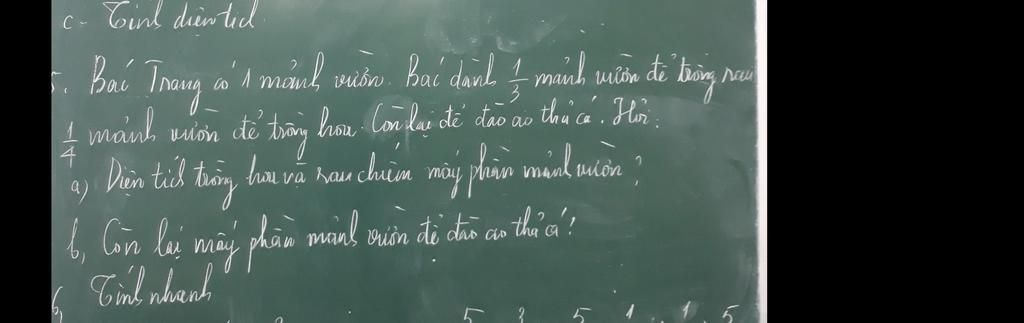 c - Tính diện tích
5. Bác Trang có 1 mảnh vườn. Bác dành 1/3 mảnh vườn để trồng rau
1/4 mảnh vườn để trồng hoa. Còn lại để đào ao thả cá. Hỏi:
a) Diện tích trồng hoa và rau chiếm mấy phần mảnh vườn?
b, Còn lại mấy phần mảnh vườn để đào ao thả cá?
6, Tính nhanh
5 3 5 1 1 5